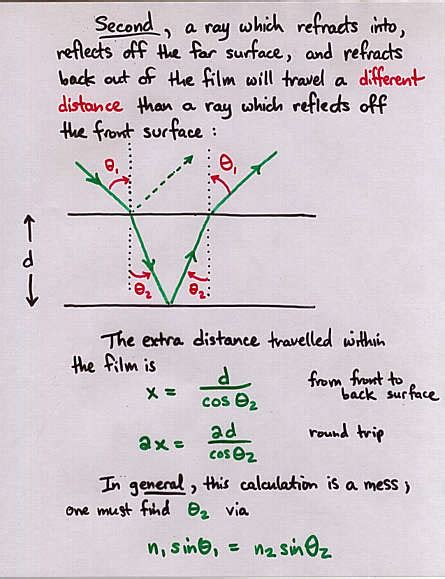 Second, a ray which refracts into,
reflects off the far surface, and refracts
back out of the film will travel a different
distance than a ray which reflects off
the front surface:
θ₁ θ₁
d
θ₂ θ₂
The extra distance travelled within
the film is
x = d / cos θ₂ from front to back surface
2x = 2d / cos θ₂ round trip
In general, this calculation is a mess;
one must find θ₂ via
n₁ sin θ₁ = n₂ sin θ₂